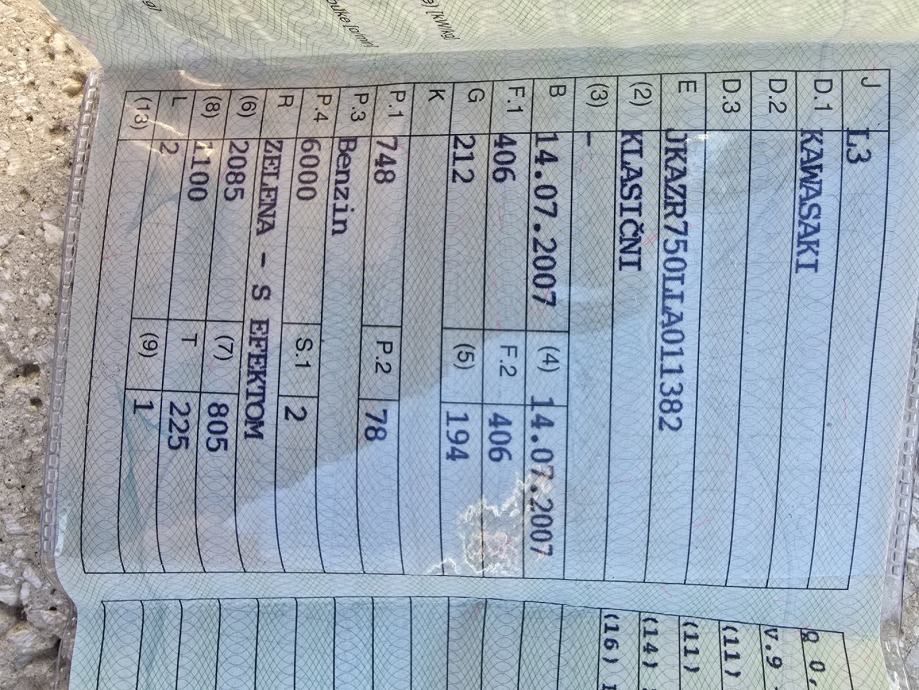 e) [kW/kg]
J L3
D.1 KAWASAKI
D.2
D.3
E JKAZR750LLA011382
(2) KLASIČNI
(3) –
B 14.07.2007 (4) 14.07.2007
F.1 406 F.2 406
G 212 (5) 194
K
P.1 748 P.2 78
P.3 Benzin
P.4 6000 S.1 2
R ZELENA - S EFEKTOM
(6) 2085 (7) 805
(8) 1100 T 225
L 2 (9) 1
(13)
8 0,
v.9
(11)
(11)
(14)
(16)